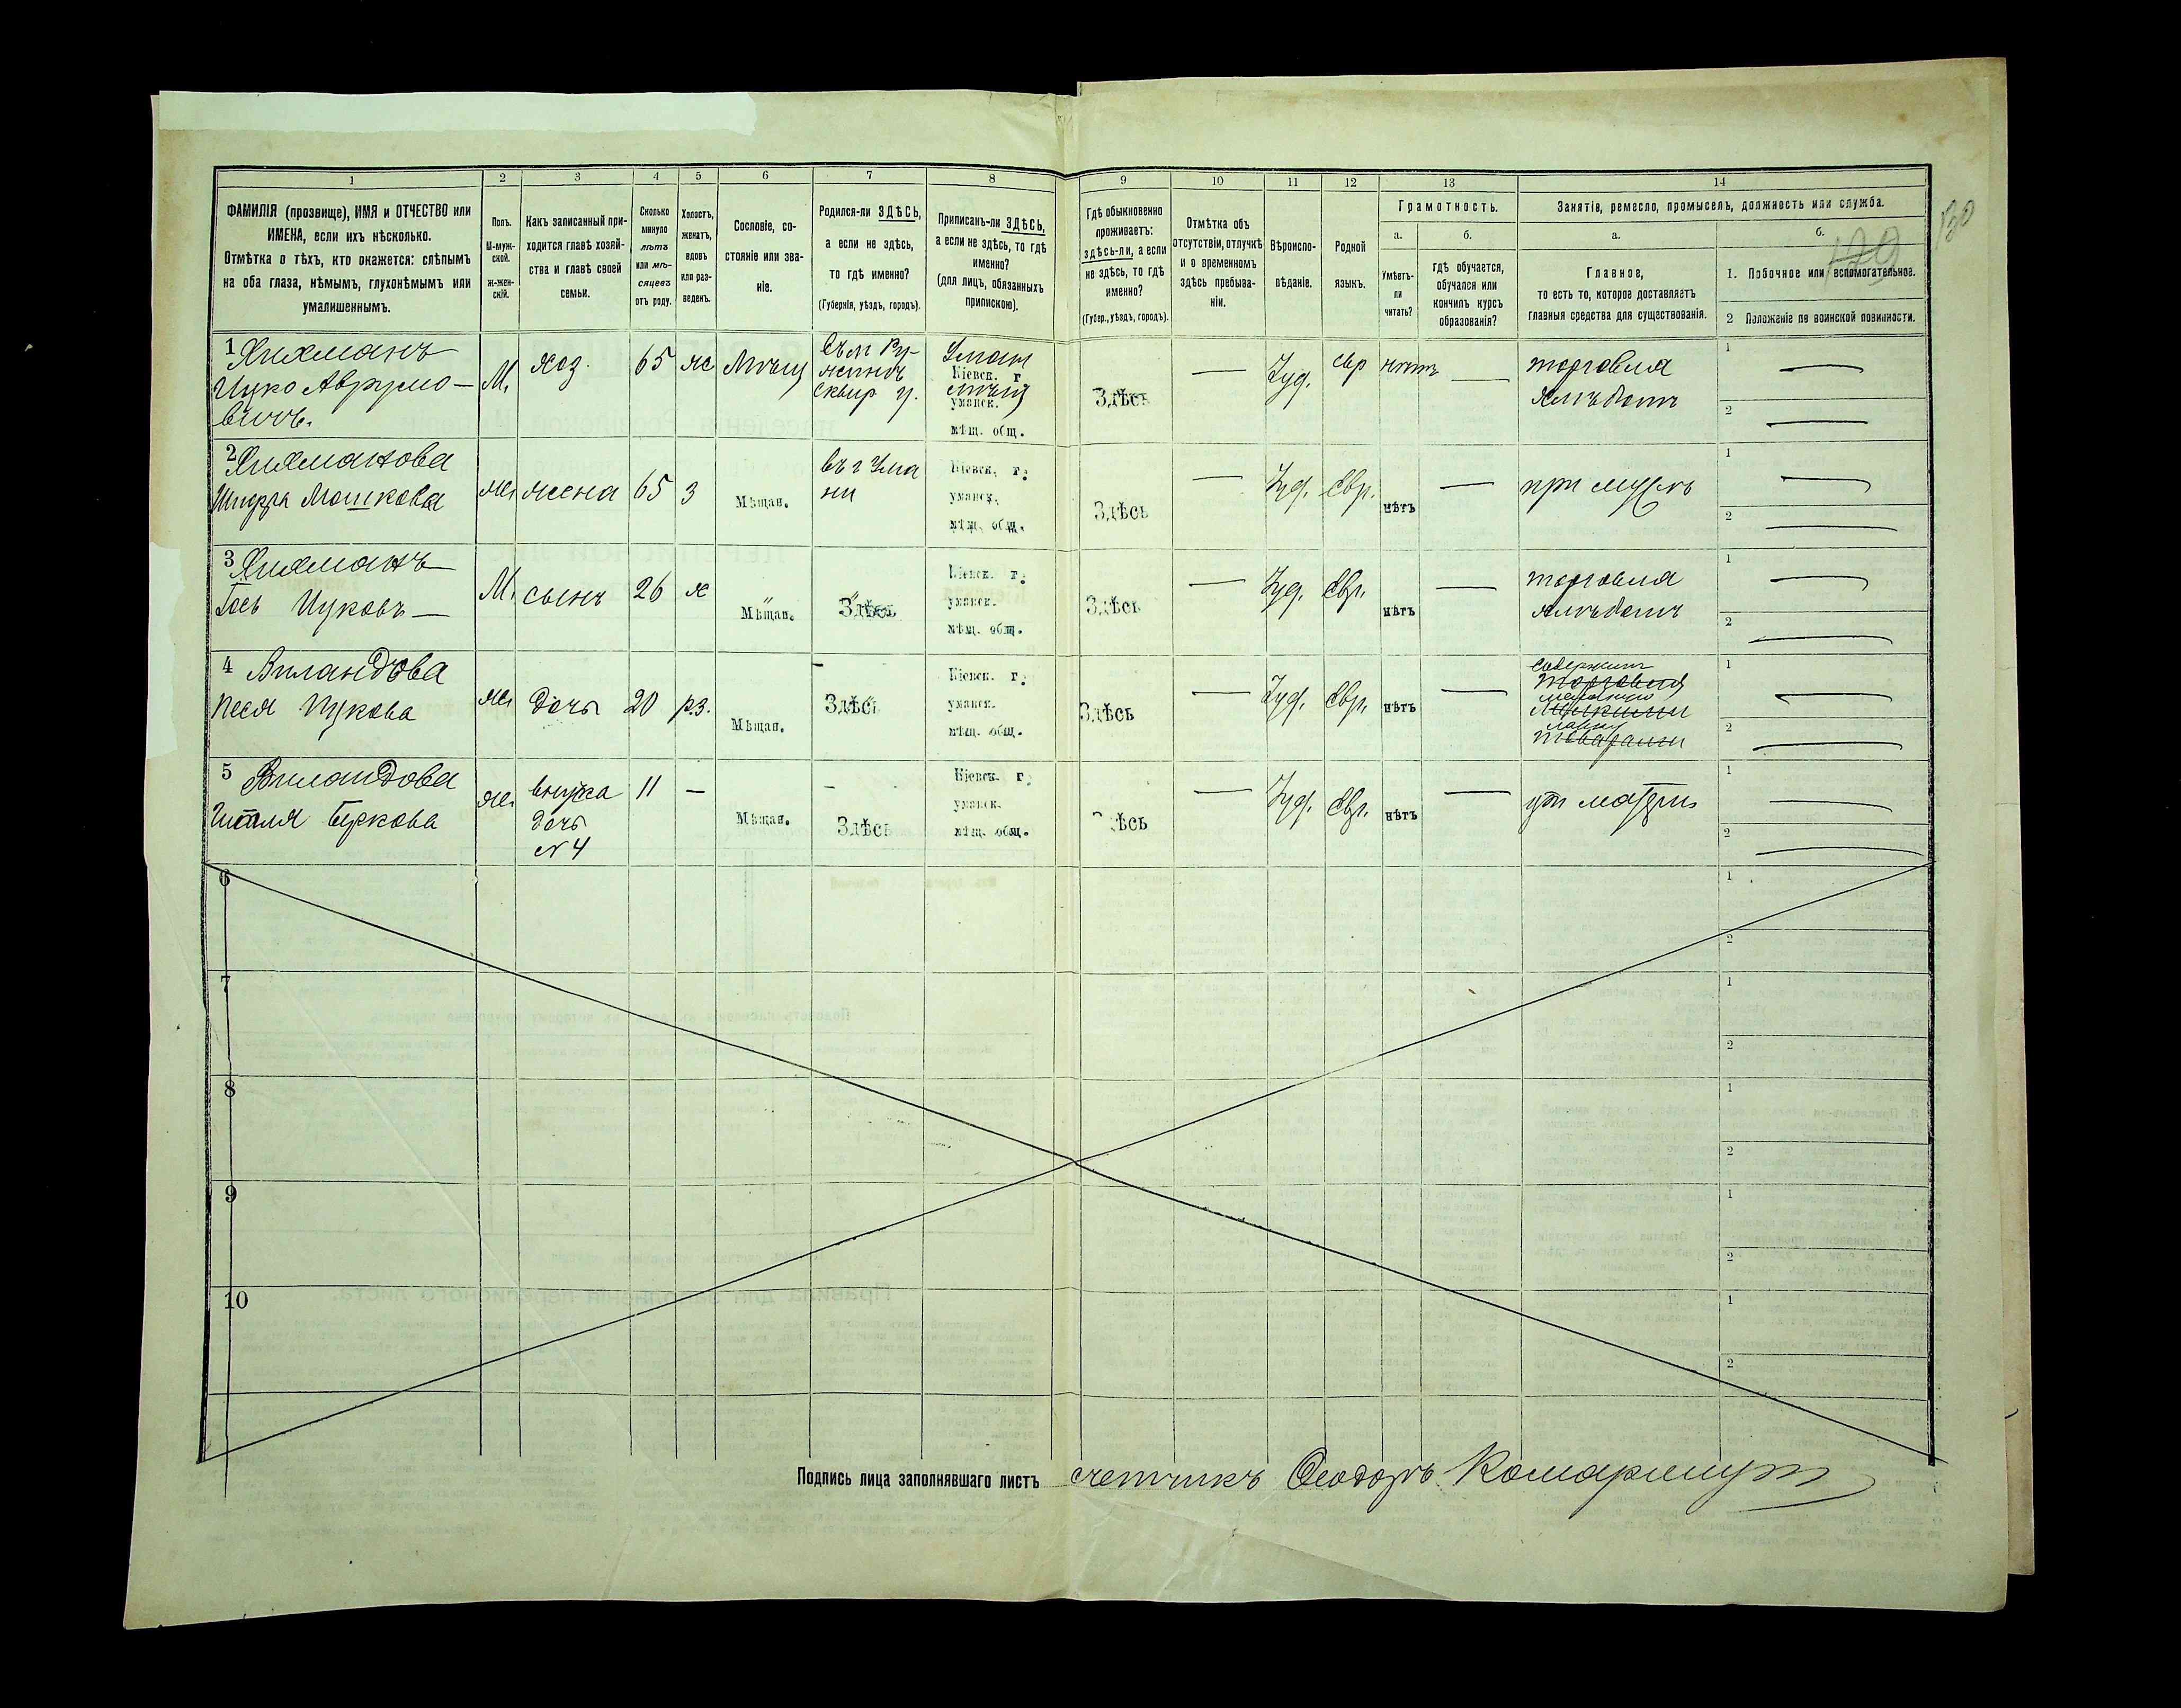 1 2 3 4 5 6 7 8 9 10 11 12 13 14
ФАМИЛІЯ (прозвище), ИМЯ и ОТЧЕСТВО или
ИМЕНА, если ихъ нѣсколько.
Отмѣтка о тѣхъ, кто окажется: слѣпымъ
на оба глаза, нѣмымъ, глухонѣмымъ или
умалишеннымъ.
Полъ.
М-муж-
ской.
ж-жен-
скій.
Какъ записанный при-
ходится главѣ хозяй-
ства и главѣ своей
семьи.
Сколько
минуло
лѣтъ
или мѣ-
сяцевъ
отъ роду.
Холостъ,
женатъ,
вдовъ
или раз-
веденъ.
Сословіе, со-
стояніе или зва-
ніе.
Родился-ли ЗДѢСЬ,
а если не здѣсь,
то гдѣ именно?
(Губернія, уѣздъ, городъ).
Приписанъ-ли ЗДѢСЬ,
а если не здѣсь, то гдѣ
именно?
(для лицъ, обязанныхъ
припискою).
Гдѣ обыкновенно
проживаетъ:
здѣсь-ли, а если
не здѣсь, то гдѣ
именно?
(Губер., уѣздъ, городъ).
Отмѣтка объ
отсутствіи, отлучкѣ
и о временномъ
здѣсь пребыва-
ніи.
Вѣроиспо-
вѣданіе.
Родной
языкъ.
Грамотность.
а.
Умѣетъ-
ли
читать?
б.
гдѣ обучается,
обучался или
кончилъ курсъ
образованія?
Занятія, ремесло, промыселъ, должность или служба.
а.
Главное,
то есть то, которое доставляетъ
главныя средства для существованія.
б.
1. Побочное или вспомогательное.
2 Положеніе по воинской повинности.
129
130
1 Хихманъ
Ицко Аврумо-
вичъ.
М. Хоз. 65 ж Мѣщ
Въ м Ру-
жинѣ
Сквир у.
Умани
Кіевск. г.
мѣщ
уманск.
мѣщ. общ.
Здѣсь — Іуд. евр нѣтъ —
торговля
хлѣбомъ
1 —
2 —
2 Хихманова
Шифра Мошкова
ж. жена 65 з Мѣщан.
въ г Ума
ни
Кіевск. г.
уманск.
мѣщ. общ.
Здѣсь — Іуд. Евр. нѣтъ — при мужѣ
1 —
2 —
3 Хихманъ
Іось Ицковъ —
М. сынъ 26 х Мѣщан. Здѣсь
Кіевск. г.
уманск.
мѣщ. общ.
Здѣсь — Іуд. Евр. нѣтъ —
торговля
хлѣбомъ
1 —
2 —
4 Виландова
Песя Ицкова
ж. дочь 20 рз. Мѣщан. Здѣсь
Кіевск. г.
уманск.
мѣщ. общ.
Здѣсь — Іуд. Евр. нѣтъ —
содержитъ
торговля
мелочную
лавку
товарами
1 —
2 —
5 Виландова
Гитля Беркова
ж. внучка
дочь
№ 4
11 — Мѣщан. Здѣсь
Кіевск. г.
уманск.
мѣщ. общ.
Здѣсь — Іуд. Евр. нѣтъ — при матери
1 —
2 —
6
1
2
7
1
2
8
1
2
9
1
2
10
1
2
Подпись лица заполнявшаго листъ счетчикъ Ѳеодоръ